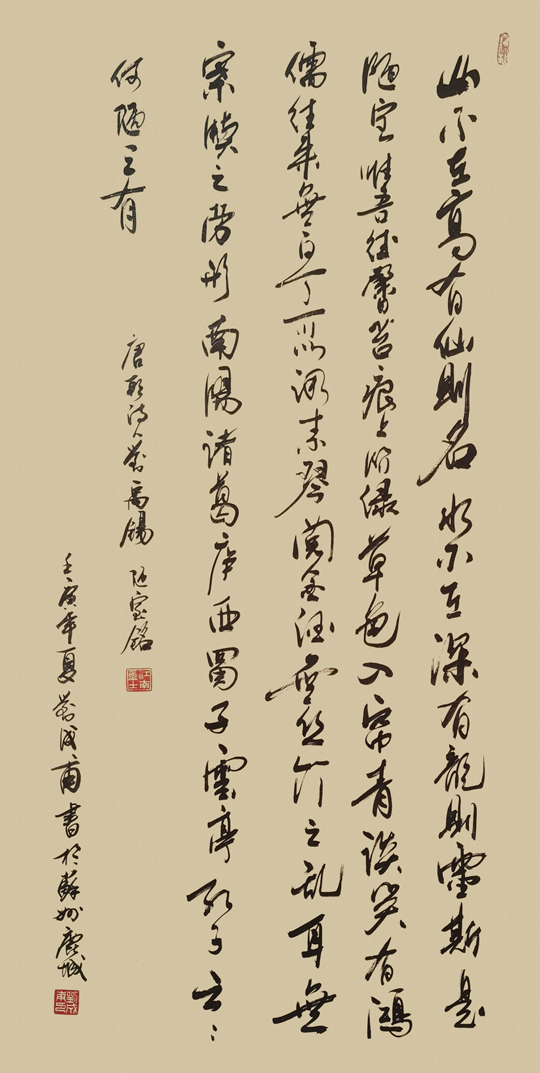 山不在高有仙則名水不在深有龍則靈斯是
陋室惟吾德馨苔痕上階綠草色入帘青談笑有鴻
儒往來無白丁可以調素琴閱金經無絲竹之亂耳無
案牘之勞形南陽諸葛庐西蜀子雲亭孔子云：
何陋之有
唐劉禹錫陋室銘
壬寅年夏劉成甫書於蘇州唐城